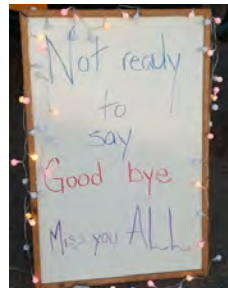 Not ready
to
say
Good bye
Miss you ALL